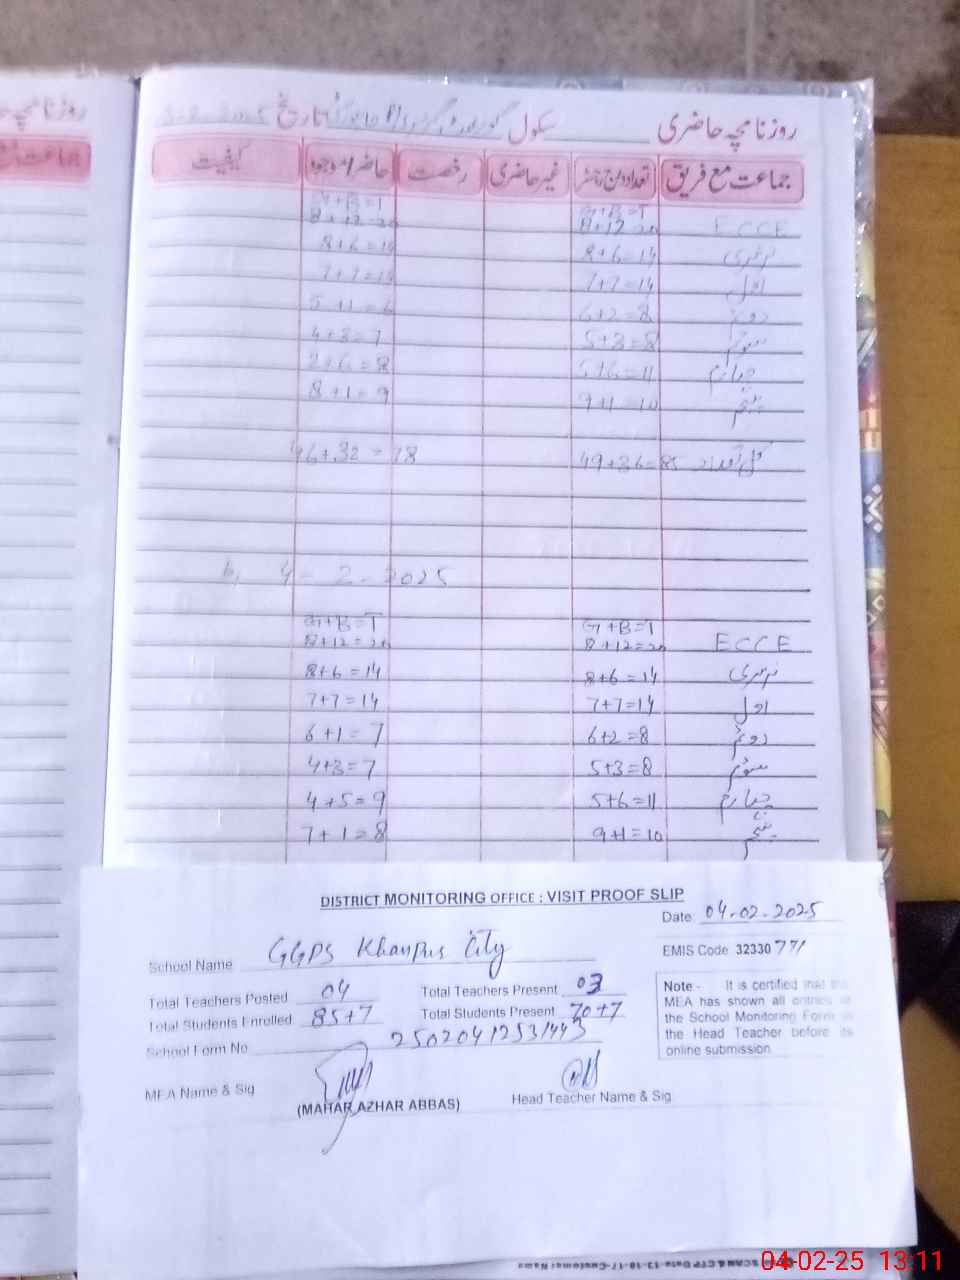 روزنامچہ حاضری سکول گورنمنٹ گرلز تاریخ 3-2-2025
جماعت مع فریق تعداد درج رجسٹر غیر حاضری رخصت حاضر/موجود کیفیت
G+B=T G+B=T
ECCE 8+12=20 8+12=20
نرسری 8+6=14 8+6=14
اول 7+7=14 7+7=14
دوئم 6+2=8 5+1=6
سوئم 5+3=8 4+3=7
چہارم 5+6=11 2+6=8
پنجم 9+1=10 8+1=9
کل تعداد 49+36=85 46+32=78
4-2-2025
G+B=T G+B=T
ECCE 8+12=20 8+12=20
نرسری 8+6=14 8+6=14
اول 7+7=14 7+7=14
دوئم 6+2=8 6+1=7
سوئم 5+3=8 4+3=7
چہارم 5+6=11 4+5=9
پنجم 9+1=10 7+1=8
DISTRICT MONITORING OFFICE : VISIT PROOF SLIP
Date 04-02-2025
School Name GGPS Khanpur City
EMIS Code 32330771
Total Teachers Posted 04 Total Teachers Present 03
Total Students Enrolled 85+7 Total Students Present 70+7
School Form No 25020412531443
Note - It is certified that the
MEA has shown all entries
the School Monitoring Form
the Head Teacher before its
online submission
MEA Name & Sig
(MAHAR AZHAR ABBAS)
Head Teacher Name & Sig
04-02-25 13:11